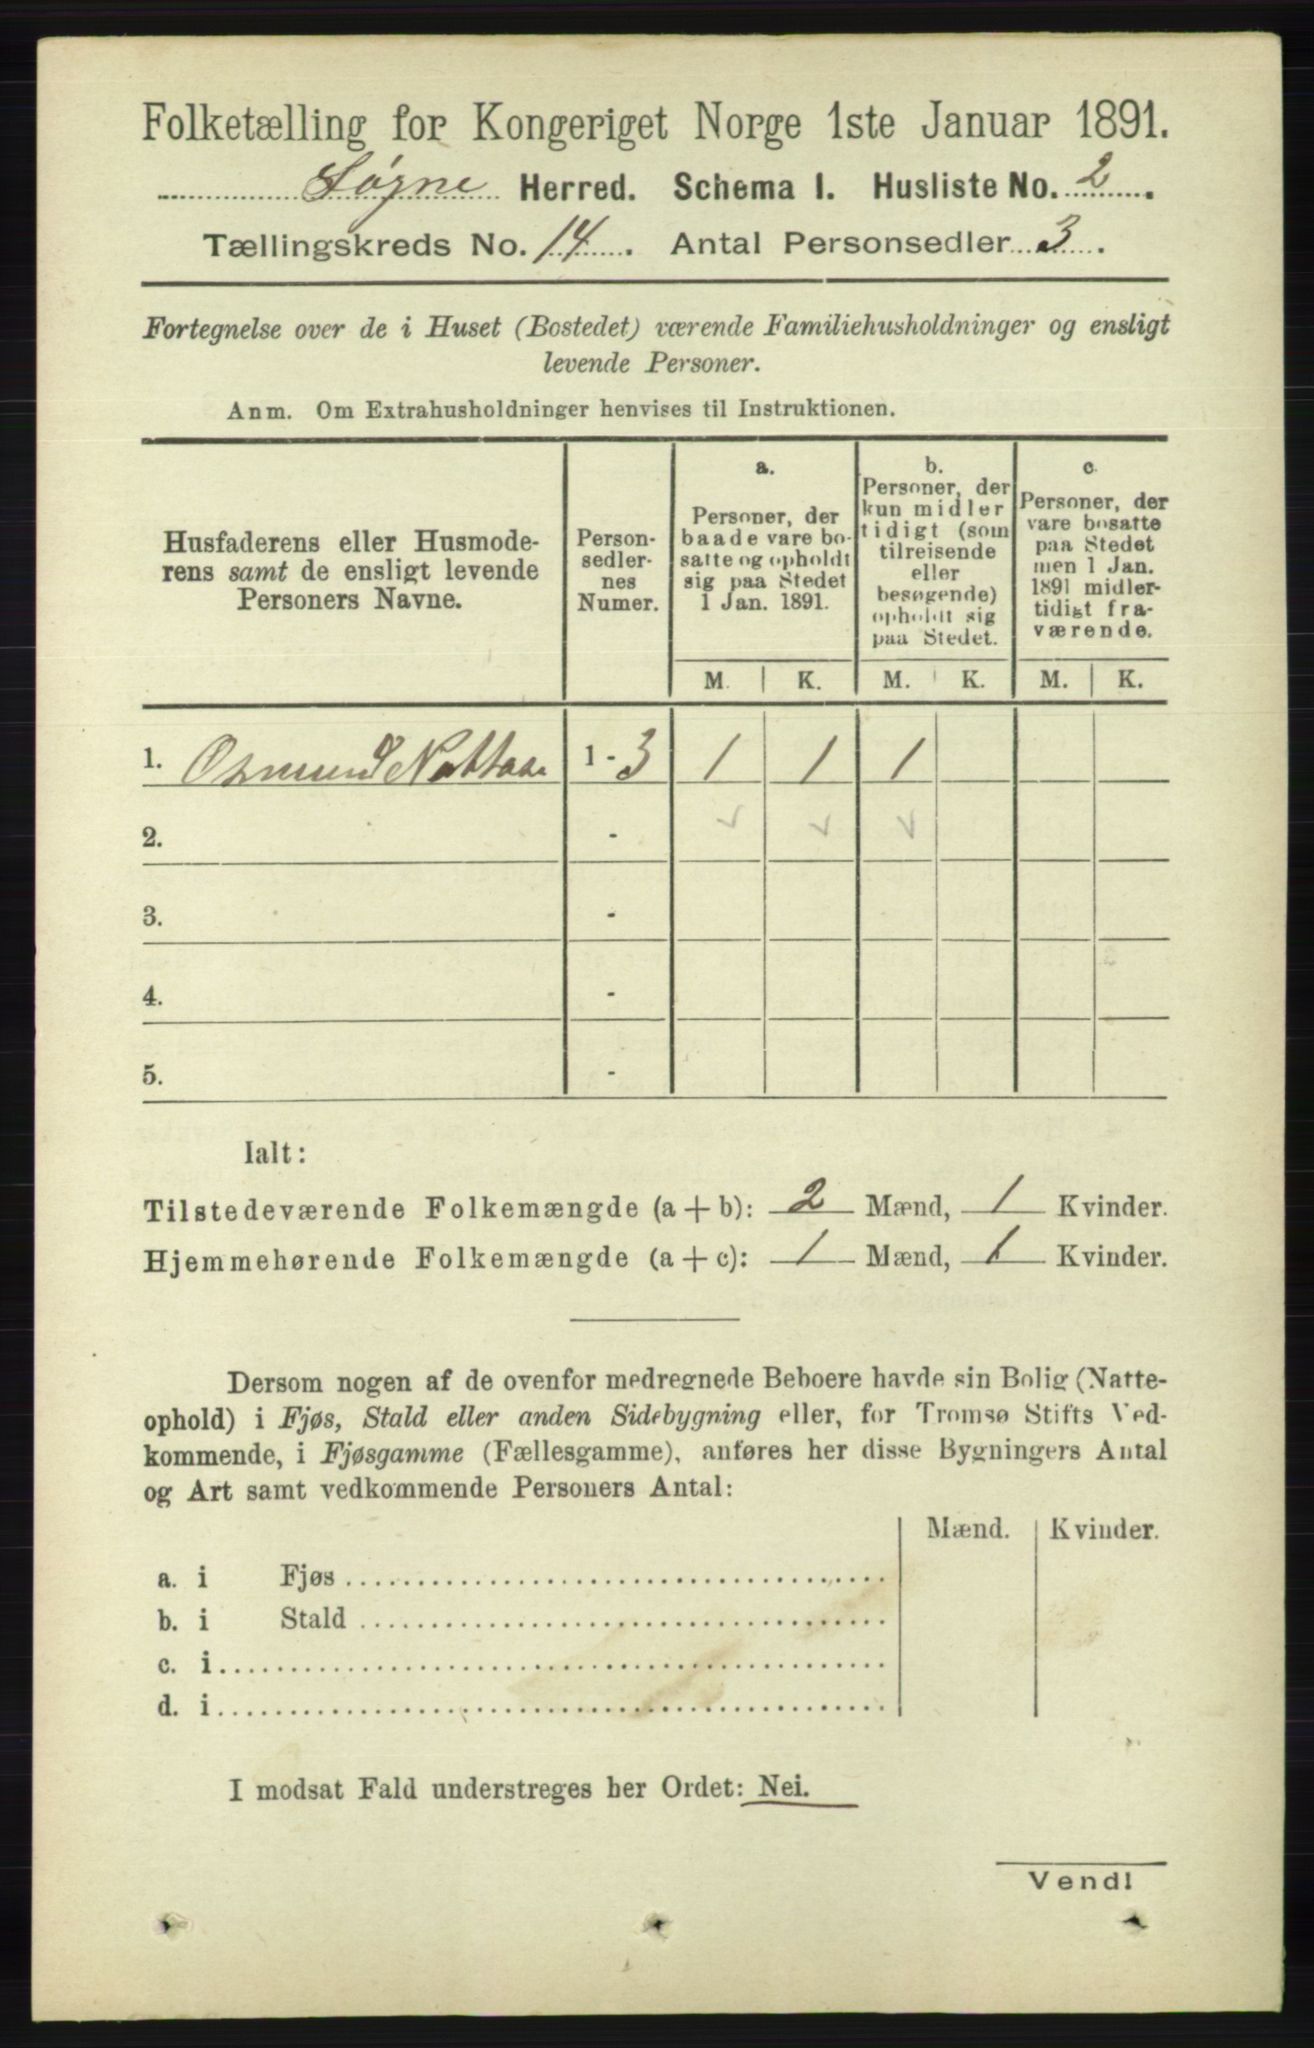 Folketælling for Kongeriget Norge 1ste Januar 1891.
Søgne Herred. Schema I. Husliste No. 2.
Tællingskreds No. 14. Antal Personsedler 3.
Fortegnelse over de i Huset (Bostedet) værende Familiehusholdninger og ensligt
levende Personer.
Anm. Om Extrahusholdninger henvises til Instruktionen.
Husfaderens eller Husmode-
rens samt de ensligt levende
Personers Navne.
Person-
sedler-
nes
Numer.
a.
Personer, der
baade vare bo-
satte og opholdt
sig paa Stedet
1 Jan. 1891.
b.
Personer, der
kun midler
tidigt (som
tilreisende
eller
besøgende)
opholdt sig
paa Stedet.
c.
Personer, der
vare bosatte
paa Stedet
men 1 Jan.
1891 midler-
tidigt fra-
værende.
M. K. M. K. M. K.
1. Osmund 1 - 3 1 1 1
2. -
3. -
4. -
5. -
Ialt:
Tilstedeværende Folkemængde (a + b): 2 Mænd, 1 Kvinder.
Hjemmehørende Folkemængde (a + c): 1 Mænd, 1 Kvinder.
Dersom nogen af de ovenfor medregnede Beboere havde sin Bolig (Natte-
ophold) i Fjøs, Stald eller anden Sidebygning eller, for Tromsø Stifts Ved-
kommende, i Fjøsgamme (Fællesgamme), anføres her disse Bygningers Antal
og Art samt vedkommende Personers Antal:
Mænd. Kvinder.
a. i Fjøs
b. i Stald
c. i
d. i
I modsat Fald understreges her Ordet: Nei.
Vend!